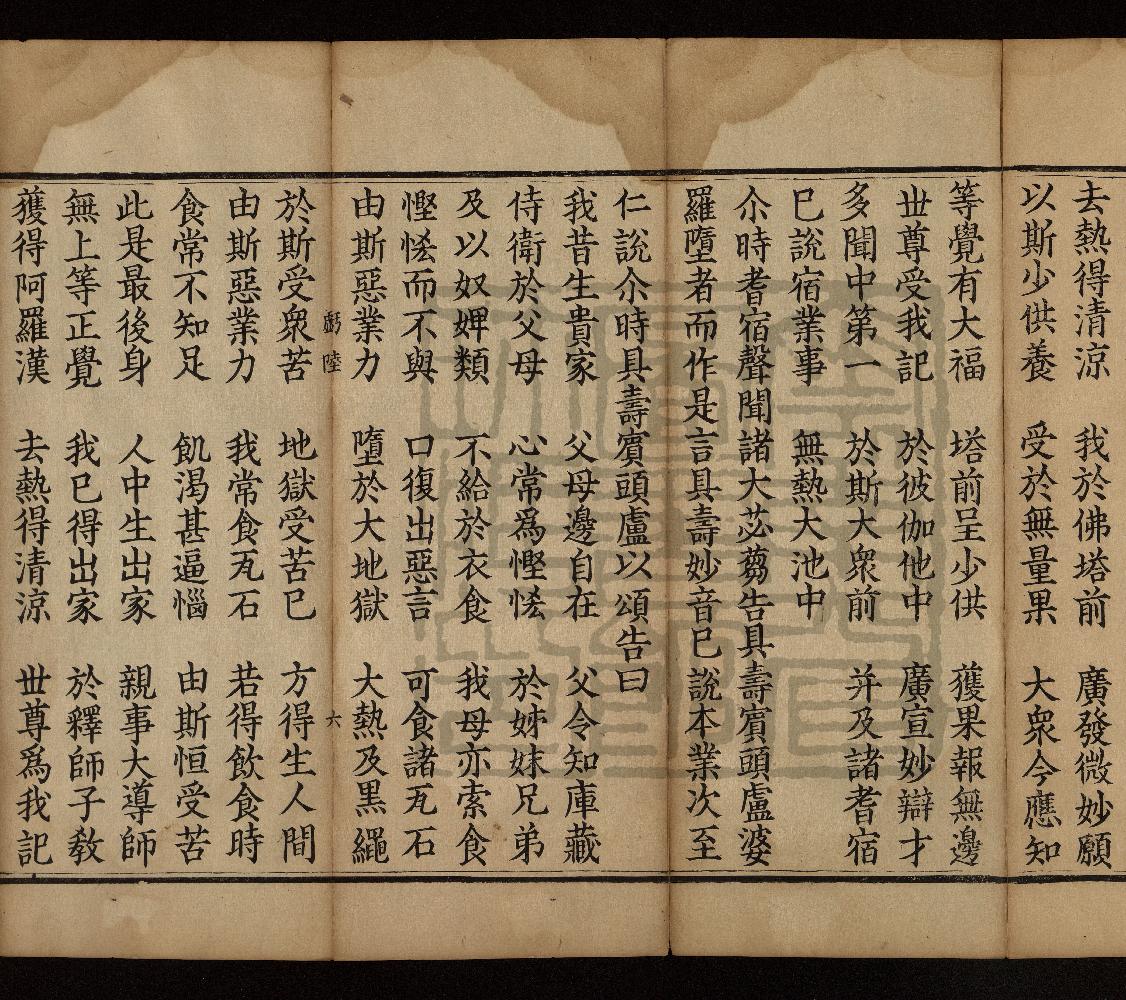 去熱得清涼　我於佛塔前　廣發微妙願
以斯少供養　受於無量果　大衆今應知
等覺有大福　塔前呈少供　獲果報無邊
世尊受我記　於彼伽他中　廣宣妙辯才
多聞中第一　於斯大衆前　并及諸耆宿
已說宿業事　無熱大池中
尒時耆宿聲聞諸大苾蒭告具壽賓頭盧婆
羅墮者而作是言具壽妙音已說本業次至
仁說尒時具壽賓頭盧以頌告曰
我昔生貴家　父母邊自在　父令知庫藏
侍衛於父母　心常爲慳悋　於姊妹兄弟
及以奴婢類　不給於衣食　我母亦索食
慳悋而不與　口復出惡言　可食諸瓦石
由斯惡業力　墮於大地獄　大熱及黑繩
虧陸　六
於斯受衆苦　地獄受苦已　方得生人間
由斯惡業力　我常食瓦石　若得飲食時
食常不知足　飢渴甚逼惱　由斯恒受苦
此是最後身　人中生出家　親事大導師
無上等正覺　我已得出家　於釋師子教
獲得阿羅漢　去熱得清涼　世尊爲我記